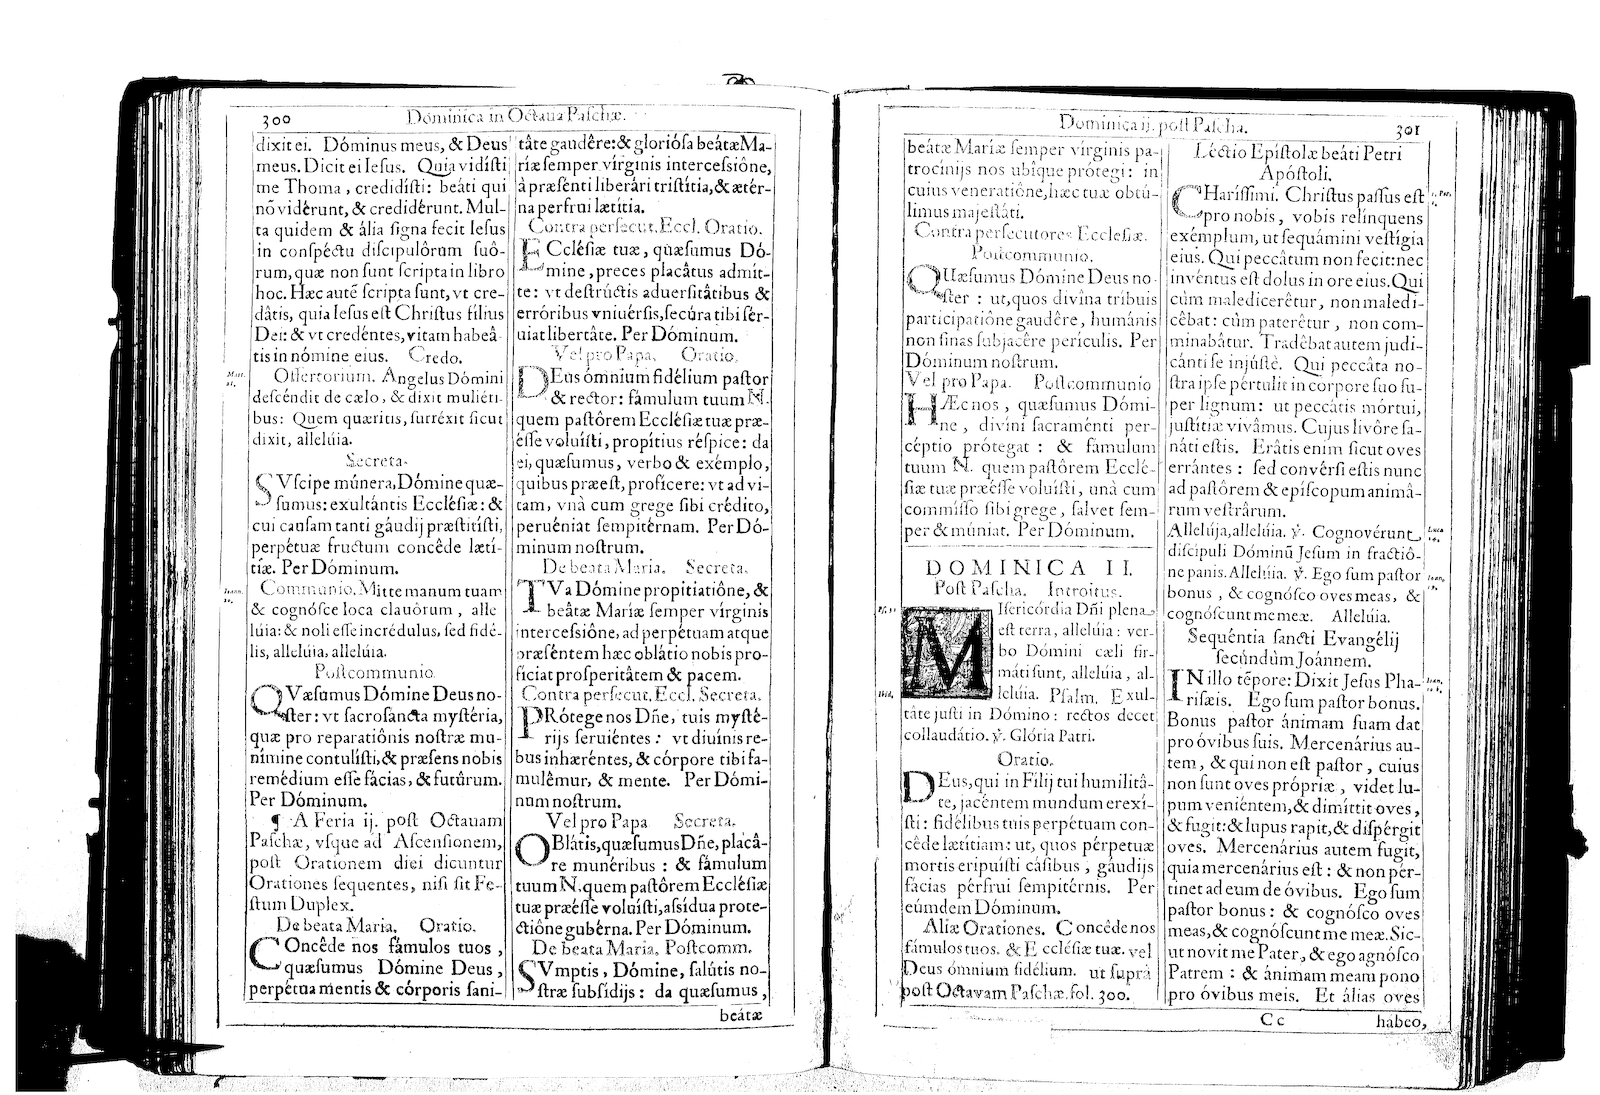 300
Dóminica in Octaua Paſchæ.
dixit ei. Dóminus meus, & Deus
meus. Dicit ei Ieſus. Quia vidíſti
me Thoma, credidíſti: beáti qui
nõ vidérunt, & credidérunt. Mul-
ta quidem & ália ſigna fecit Ieſus
in conſpéctu diſcipulôrum ſuô-
rum, quæ non ſunt ſcripta in libro
hoc. Hæc autẽ ſcripta ſunt, vt cre-
dâtis, quia Ieſus eſt Chriſtus filius
Dei: & vt credéntes, vitam habeâ-
tis in nómine eius. Credo.
Offertorium. Angelus Dómini
deſcéndit de cælo, & dixit muliéri-
bus: Quem quæritis, ſurréxit ſicut
dixit, allelúia.
Secreta.
SVſcipe múnera, Dómine quæ-
ſumus: exultántis Eccléſiæ: &
cui cauſam tanti gáudij præſtitíſti,
perpétuæ fructum concêde lætí-
tiæ. Per Dóminum.
Communio. Mitte manum tuam
& cognóſce loca clauôrum, alle
lúia: & noli eſſe incrédulus, ſed fidé-
lis, allelúia, allelúia.
Poſtcommunio.
QVæſumus Dómine Deus no-
ſter: vt ſacroſáncta myſtéria,
quæ pro reparatiônis noſtræ mu-
nímine contulíſti, & præſens nobis
remédium eſſe fácias, & futûrum.
Per Dóminum.
¶ A Feria ij. poſt Octauam
Paſchæ, vſque ad Aſcenſionem,
poſt Orationem diei dicuntur
Orationes ſequentes, niſi ſit Fe-
ſtum Duplex.
De beata Maria. Oratio.
COncêde nos fámulos tuos,
quæſumus Dómine Deus,
perpétua mentis & córporis ſani-
tâte gaudêre: & glorióſa beátæ Ma-
ríæ ſemper vírginis interceſsiône,
à præſenti liberári triſtítia, & ætér-
na perfrui lætítia.
Contra perſecut. Eccl. Oratio.
ECcléſiæ tuæ, quæſumus Dó-
mine, preces placâtus admít-
te: vt deſtrúctis aduerſitâtibus &
erróribus vniuérſis, ſecúra tibi ſér-
uiat libertâte. Per Dóminum.
Vel pro Papa. Oratio.
DEus ómnium fidélium paſtor
& rector: fámulum tuum N.
quem paſtôrem Eccléſiæ tuæ præ-
éſſe voluíſti, propítius réſpice: da
ei, quæſumus, verbo & exémplo,
quibus præeſt, profícere: vt ad vi-
tam, vnà cum grege ſibi crédito,
peruéniat ſempitérnam. Per Dó-
minum noſtrum.
De beata Maria. Secreta.
TVa Dómine propitiatiône, &
beâtæ Maríæ ſemper vírginis
interceſsiône, ad perpétuam atque
præſéntem hæc oblátio nobis pro-
fíciat proſperitâtem & pacem.
Contra perſecut. Eccl. Secreta.
PRótege nos Dñe, tuis myſté-
rijs ſeruiéntes: vt diuínis re-
bus inhæréntes, & córpore tibi fa-
mulêmur, & mente. Per Dómi-
num noſtrum.
Vel pro Papa Secreta.
OBlátis, quæſumus Dñe, placâ-
re munéribus: & fámulum
tuum N. quem paſtôrem Eccléſiæ
tuæ præéſſe voluíſti, aſsídua prote-
ctiône gubérna. Per Dóminum.
De beata Maria. Poſtcomm.
SVmptis, Dómine, ſalútis no-
ſtræ ſubſídijs: da quæſumus,
beátæ
Dominica ij. poſt Paſcha.
301
beátæ Maríæ ſemper vírginis pa-
trocínijs nos ubíque prótegi: in
cuius veneratiône, hæc tuæ obtú-
limus majeſtáti.
Contra perſecutores Eccleſiæ.
Poſtcommunio.
QUæſumus Dómine Deus no-
ſter: ut, quos divína tríbuis
participatiône gaudére, humánis
non ſinas ſubjacére perículis. Per
Dóminum noſtrum.
Vel pro Papa. Poſtcommunio
HÆc nos, quæſumus Dómi-
ne, divíni ſacraménti per-
céptio prótegat: & fámulum
tuum N. quem paſtôrem Ecclé-
ſiæ tuæ præéſſe voluíſti, unà cum
commíſſo ſibi grege, ſalvet ſem-
per & múniat. Per Dóminum.
DOMINICA II.
Poſt Paſcha. Introitus.
MIſericórdia Dñi plena
eſt terra, allelúia: ver-
bo Dómini cæli fir-
máti ſunt, allelúia, al-
lelúia. Pſalm. Exul-
táte juſti in Dómino: rectos decet
collaudátio. ℣. Glória Patri.
Oratio.
DEus, qui in Fílij tui humilitâ-
te, jacéntem mundum erexí-
ſti: fidélibus tuis perpétuam con-
cêde lætítiam: ut, quos perpétuæ
mortis eripuíſti cáſibus, gáudijs
fácias pérfrui ſempitérnis. Per
eúmdem Dóminum.
Aliæ Orationes. Concéde nos
fámulos tuos. & Eccléſiæ tuæ. vel
Deus ómnium fidélium. ut ſuprà
poſt Octavam Paſchæ. fol. 300.
Léctio Epíſtolæ beáti Petri
Apóſtoli.
CHaríſſimi. Chriſtus paſſus eſt
pro nobis, vobis relínquens
exémplum, ut ſequámini veſtígia
eius. Qui peccâtum non fecit: nec
invéntus eſt dolus in ore eius. Qui
cùm maledicerêtur, non maledi-
cêbat: cùm paterêtur, non com-
minabâtur. Tradêbat autem judi-
cánti ſe injúſtè. Qui peccáta no-
ſtra ipſe pértulit in corpore ſuo ſu-
per lignum: ut peccátis mórtui,
juſtítiæ vivâmus. Cujus livôre ſa-
náti eſtis. Erâtis enim ſicut oves
errántes: ſed convérſi eſtis nunc
ad paſtôrem & epíſcopum animâ-
rum veſtrârum.
Allelúja, allelúia. ℣. Cognovérunt
diſcípuli Dóminũ Jeſum in fractiô-
ne panis. Allelúia. ℣. Ego ſum paſtor
bonus, & cognóſco oves meas, &
cognóſcunt me meæ. Allelúia.
Sequéntia ſancti Evangélij
ſecúndùm Joánnem.
IN illo tẽpore: Dixit Jeſus Pha-
riſæis. Ego ſum paſtor bonus.
Bonus paſtor ánimam ſuam dat
pro óvibus ſuis. Mercenárius au-
tem, & qui non eſt paſtor, cuius
non ſunt oves própriæ, videt lu-
pum veniéntem, & dimíttit oves,
& fugit: & lupus rapit, & diſpérgit
oves. Mercenárius autem fugit,
quia mercenárius eſt: & non pér-
tinet ad eum de óvibus. Ego ſum
paſtor bonus: & cognóſco oves
meas, & cognóſcunt me meæ. Sic-
ut novit me Pater, & ego agnóſco
Patrem: & ánimam meam pono
pro óvibus meis. Et álias oves
Cc
habeo,